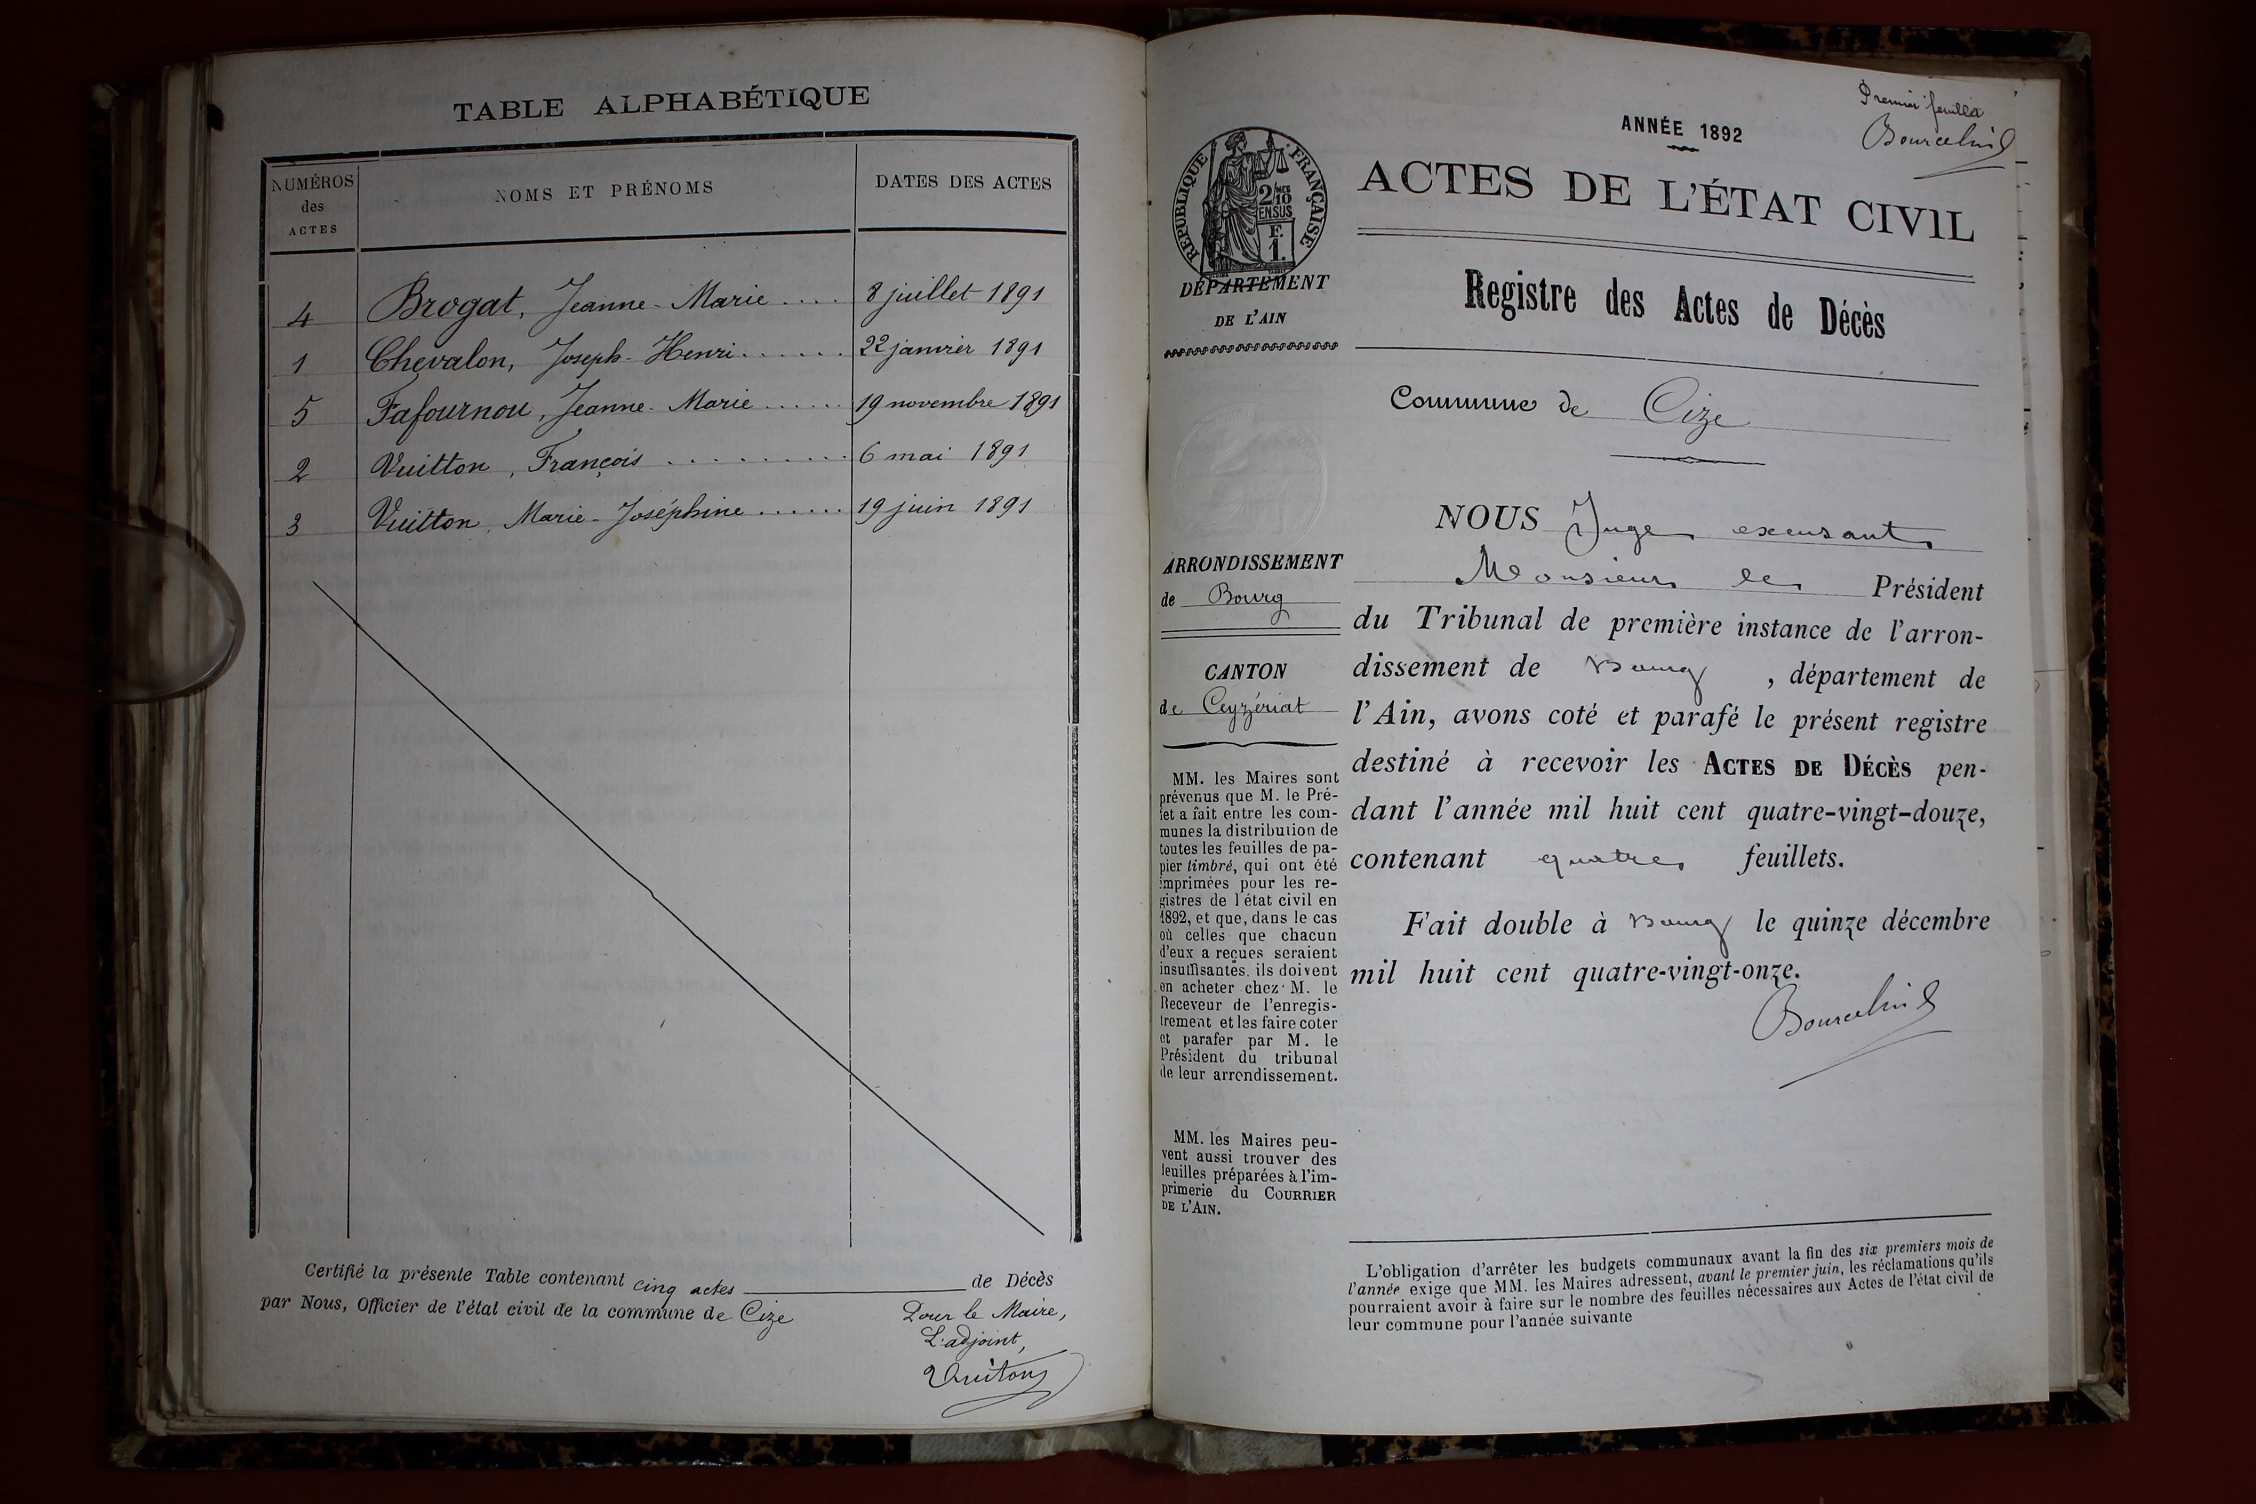 TABLE ALPHABÉTIQUE
NUMÉROS des ACTES | NOMS ET PRÉNOMS | DATES DES ACTES
4 Brogat, Jeanne-Marie .... 8 juillet 1891
1 Chevalon, Joseph-Henri ...... 22 janvier 1891
5 Fafournou, Jeanne-Marie ...... 19 novembre 1891
2 Vuitton, François .......... 6 mai 1891
3 Vuitton, Marie-Joséphine ...... 19 juin 1891
Certifié la présente Table contenant cinq actes de Décès
par Nous, Officier de l'état civil de la commune de Cize
Pour le Maire,
L'adjoint,
Vuitton
Premier feuillet
ANNÉE 1892
ACTES DE L'ÉTAT CIVIL
RÉPUBLIQUE FRANÇAISE
2/10 EN SUS
F. 1.
DÉPARTEMENT
DE L'AIN
Registre des Actes de Décès
Commune de Cize
ARRONDISSEMENT
de Bourg
CANTON
de Ceyzériat
MM. les Maires sont
prévenus que M. le Pré-
fet a fait entre les com-
munes la distribution de
toutes les feuilles de pa-
pier timbré, qui ont été
imprimées pour les re-
gistres de l'état civil en
1892, et que, dans le cas
où celles que chacun
d'eux a reçues seraient
insuffisantes, ils doivent
en acheter chez M. le
Receveur de l'enregis-
trement et les faire coter
et parafer par M. le
Président du tribunal
de leur arrondissement.
MM. les Maires peu-
vent aussi trouver des
feuilles préparées à l'im-
primerie du COURRIER
DE L'AIN.
NOUS Juge excusant
Monsieur le Président
du Tribunal de première instance de l'arron-
dissement de Bourg, département de
l'Ain, avons coté et parafé le présent registre
destiné à recevoir les ACTES DE DÉCÈS pen-
dant l'année mil huit cent quatre-vingt-douze,
contenant quatre feuillets.
Fait double à Bourg le quinze décembre
mil huit cent quatre-vingt-onze.
L'obligation d'arrêter les budgets communaux avant la fin des six premiers mois de
l'année exige que MM. les Maires adressent, avant le premier juin, les réclamations qu'ils
pourraient avoir à faire sur le nombre des feuilles nécessaires aux Actes de l'état civil de
leur commune pour l'année suivante